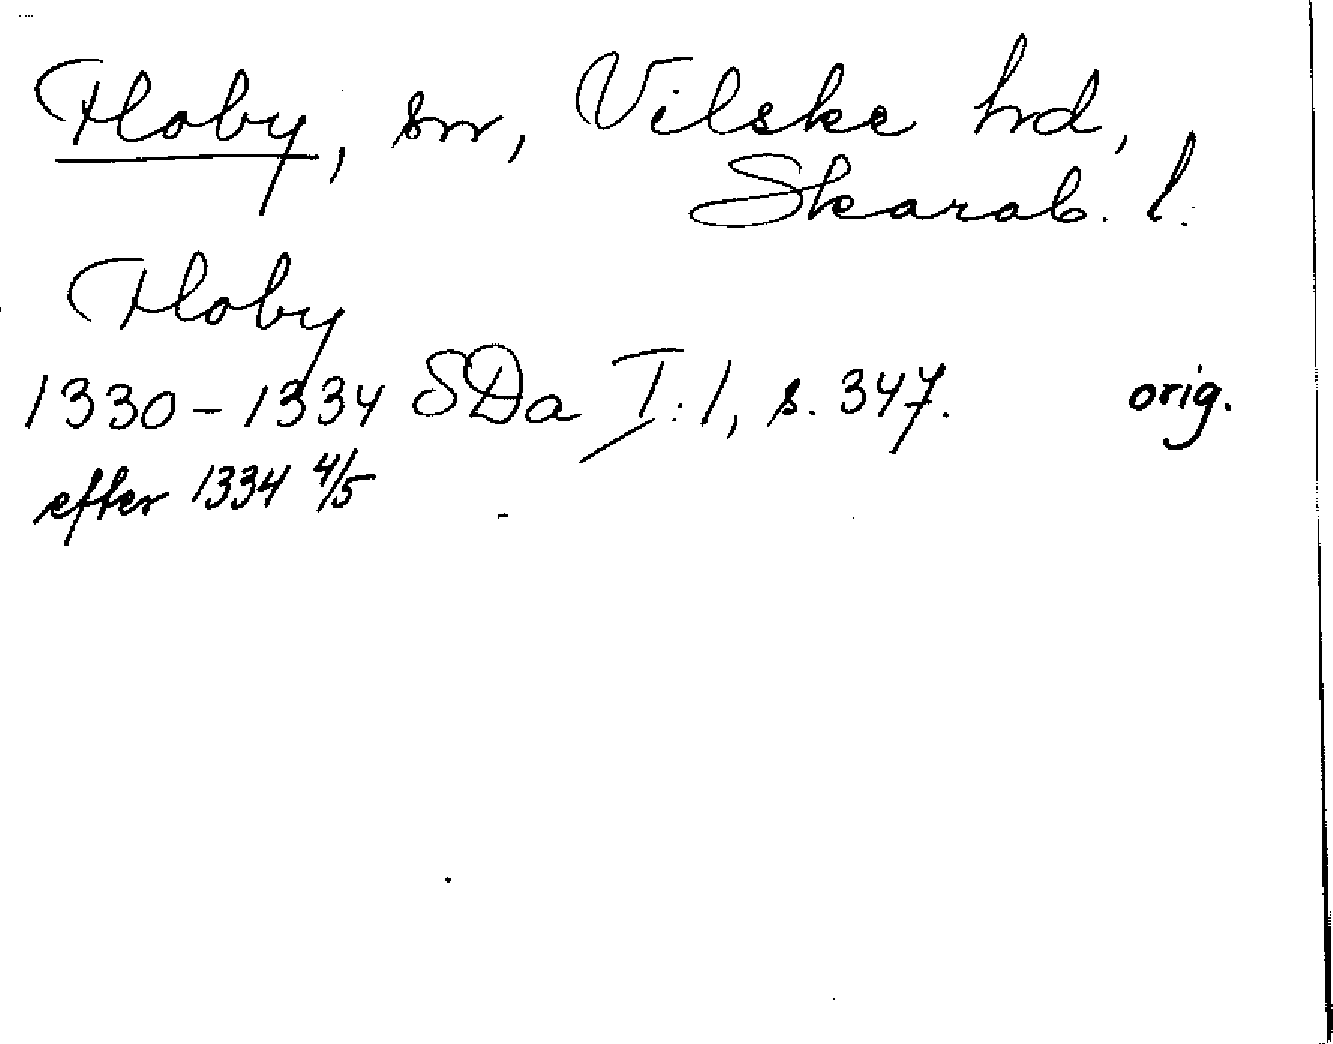 Floby, sn, Vilske hd,
Skarab. l.
Floby
1330-1334 SDa I:1, s. 347. orig.
efter 1334 4/5